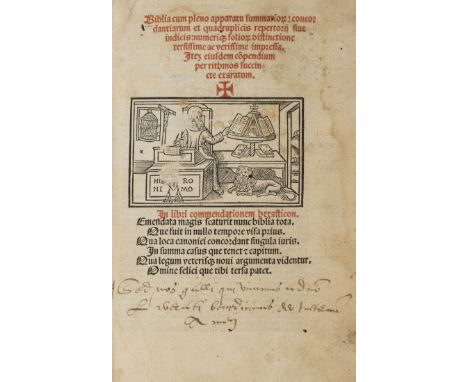 Biblia cum pleno apparatu summarioꝝ: concor
dantiarum et quadruplicis repertorij siue
indicis: numeriqꝫ folioꝝ distinctione
tersissime ac verissime impressa.
Iteꝫ eiusdem cōpendium
per rithmos succin-
cte exaratum.
HI RO
NI MO
In libri commendationem hexasticon.
Emendata magis scaturit nunc biblia tota.
Que fuit in nullo tempore visa prius.
Qua loca canonici concordant singula iuris.
In summa casus que tenet ⁊ capitum.
Qua legum veterisqꝫ noui argumenta videntur.
Omine felici que tibi tersa patet.
Sed nos qui
Amen